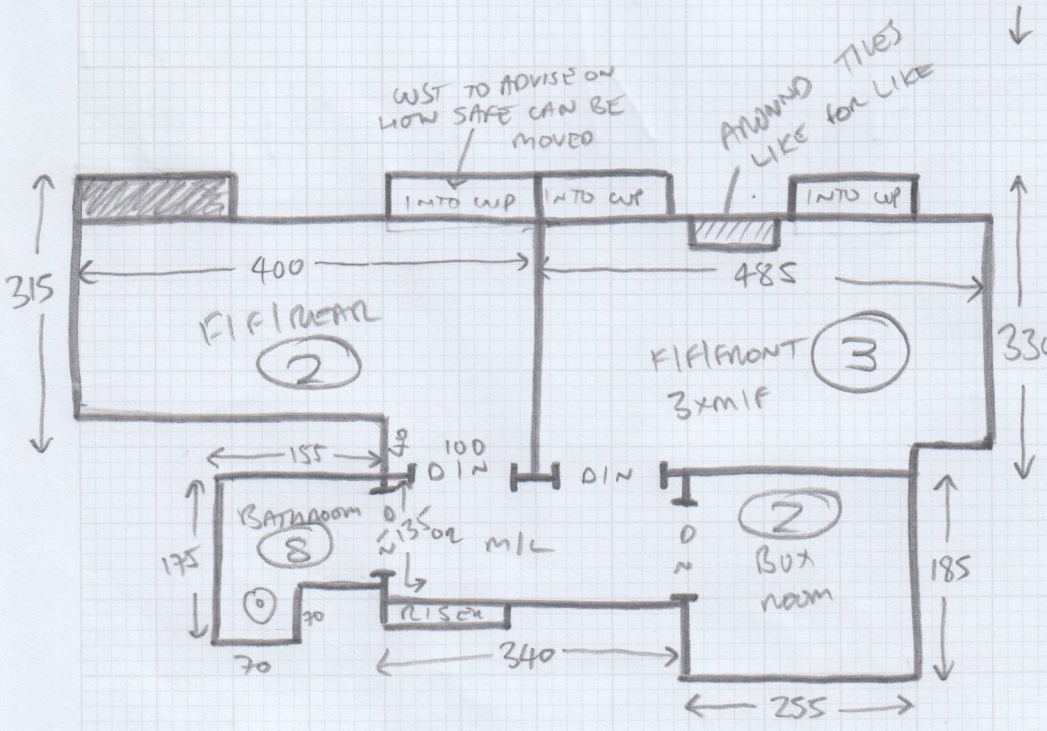 CUST TO ADVISE ON
HOW SAFE CAN BE
MOVED
AROUND TILES
LIKE FOR LIKE
INTO CUP
INTO CUP
INTO CUP
315
400
485
F/F/REAR
2
F/F/FRONT
3
3xM/F
330
155
40
100
D/N
D/N
BATHROOM
8
175
D
N
135
M/L
D
N
2
BOX
ROOM
185
70
RISER
70
340
255